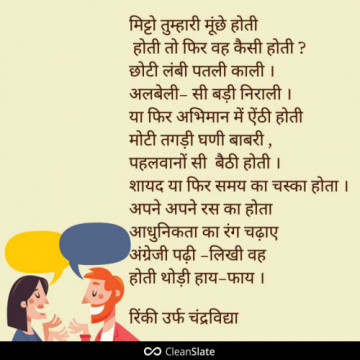 मिट्टो तुम्हारी मूंछे होती
होती तो फिर वह कैसी होती ?
छोटी लंबी पतली काली ।
अलबेली– सी बड़ी निराली ।
या फिर अभिमान में ऐंठी होती
मोटी तगड़ी घणी बाबरी ,
पहलवानों सी बैठी होती ।
शायद या फिर समय का चस्का होता ।
अपने अपने रस का होता
आधुनिकता का रंग चढ़ाए
अंग्रेजी पढ़ी –लिखी वह
होती थोड़ी हाय–फाय ।
रिंकी उर्फ चंद्रविद्या
CleanSlate